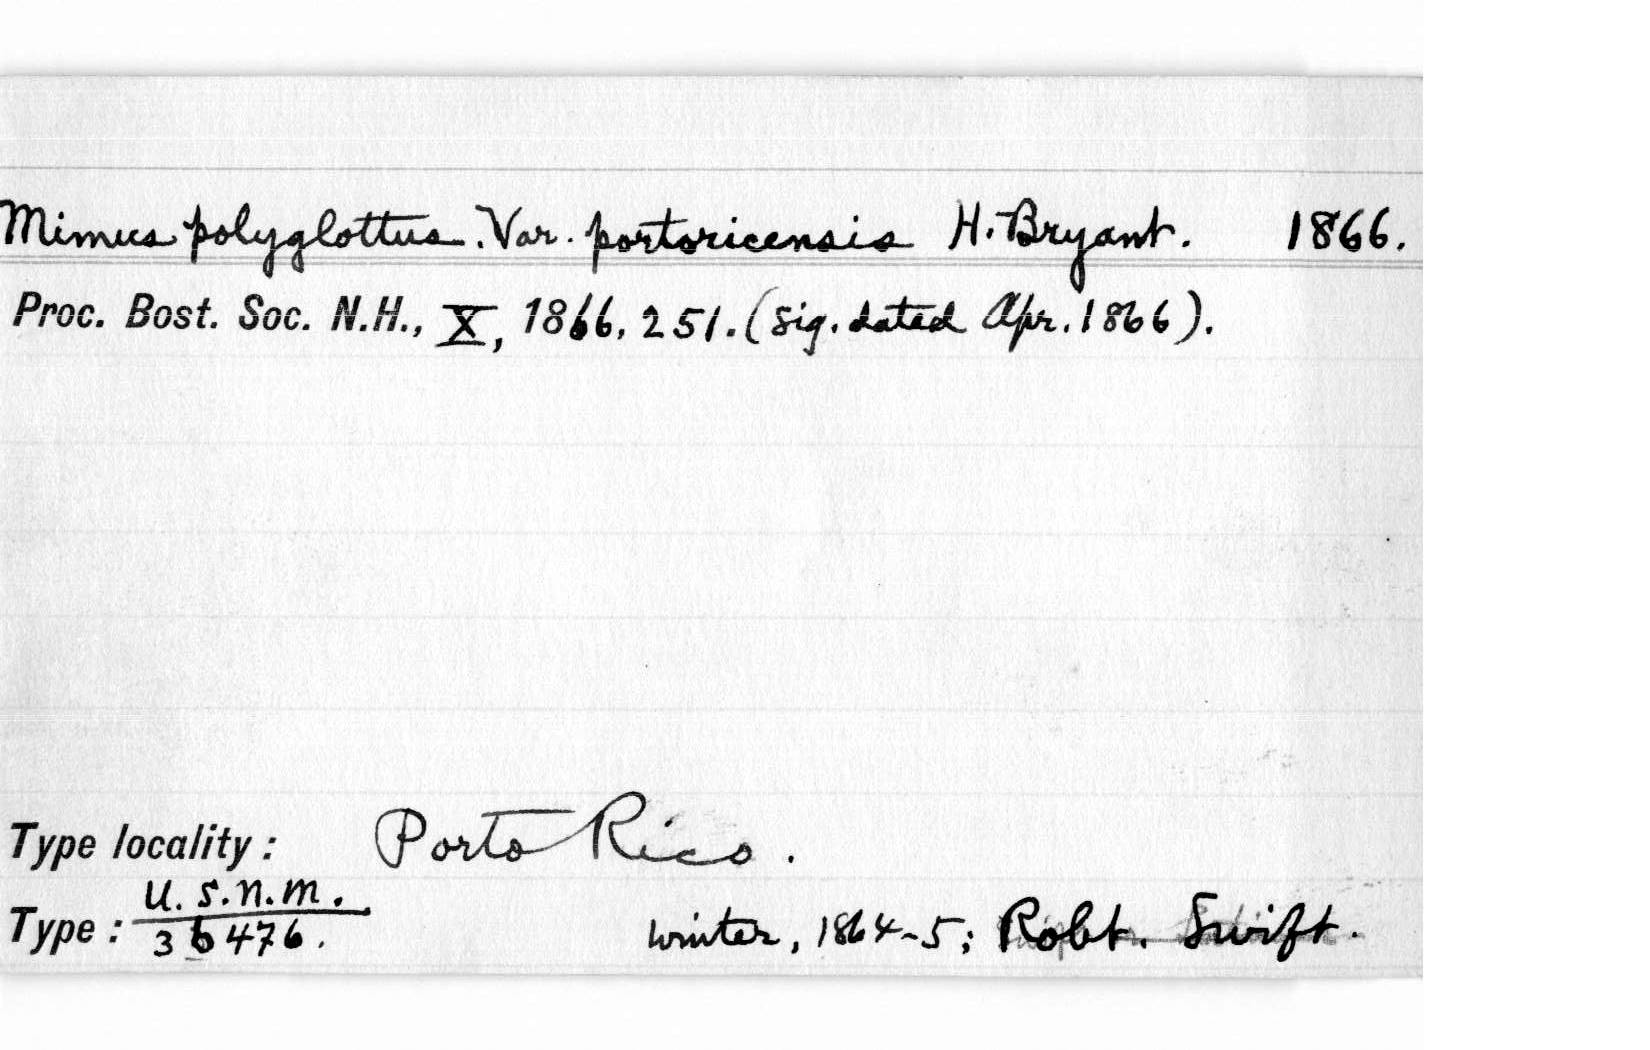 Mimus polyglottus. Var. portoricensis H. Bryant. 1866.
Proc. Bost. Soc. N.H., X, 1866, 251. (Sig. dated Apr. 1866).
Type locality: Porto Rico.
U.S.N.M.
Type: 36476. Winter, 1864-5; Robt. Swift.